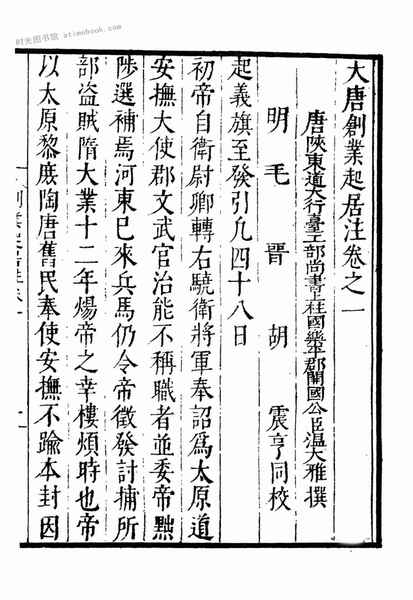 时光图书馆 atimebook.com
大唐創業起居注卷之一
唐陝東道大行臺工部尚書上柱國樂平郡開國公臣溫大雅撰
明毛晉胡震亨同校
起義旗至發引凢四十八日
初帝自衛尉卿轉右驍衛將軍奉詔爲太原道
安撫大使郡文武官治能不稱職者並委帝黜
陟選補焉河東已來兵馬仍令帝徵發討捕所
部盗賊隋大業十二年煬帝之幸樓煩時也帝
以太原黎庶陶唐舊民奉使安撫不踰本封因